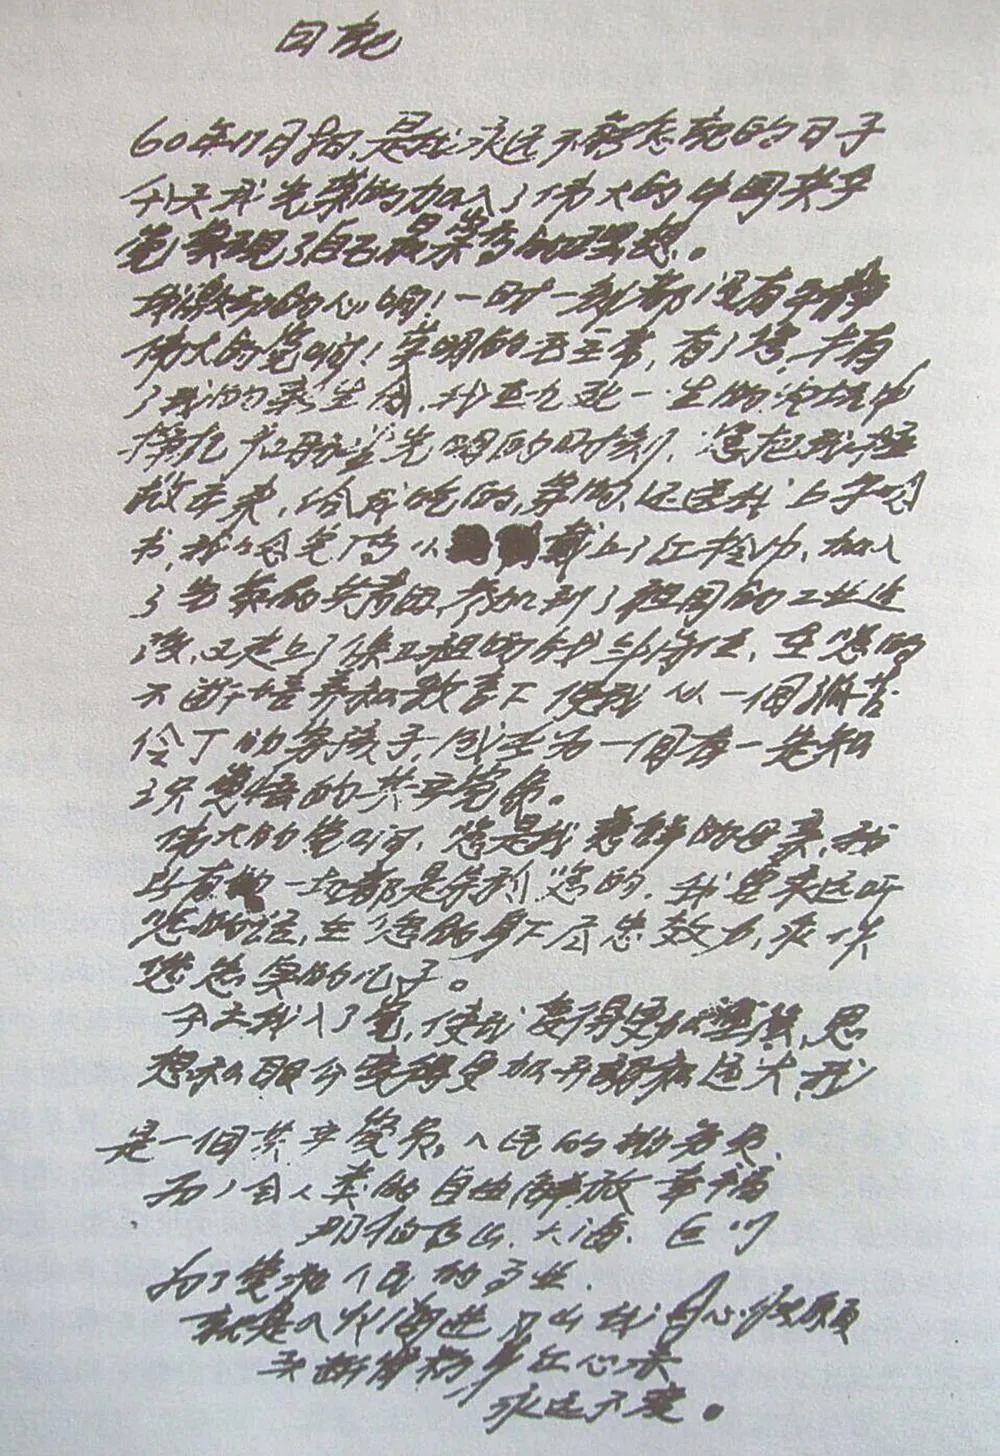 日記
60年11月8日，是我永远不能忘記的日子
今天我光荣的加入了伟大的中国共产
党，实现了自己最崇高的理想。
我激动的心啊！一时一刻都没有平静
伟大的党啊！英明的毛主席，有了您，才有
了我的新生命，我在九死一生的火坑中
挣扎和盼望光明的时刻，您把我拯
救出来，给我吃的，穿的，还送我上学念
书，我念完了高小 戴上了红领巾，加入
了光荣的共青团，参加到了祖国的工业建
设，又走上了保卫祖国的战斗岗位，在您的
不断培养和教育下，使我从一個孤苦
伶丁的穷孩子，成长为一個有一定知
识觉悟的共产党员。
伟大的党啊，您是我慈祥的母亲，我
所有的一切都是属于您的，我要永远听
您的话，在您的身下尽忠效力，永作
您忠实的儿子。
今天我入了党，使我变得更加坚强，思
想和眼介变得更加开朗和远大，我
是一個共产党员，人民的勤务员，
为了全人类的自由解放幸福
那怕高山、大海、巨川
为了党和人民的事业，
就是入火海进刀山我甘心情愿
头断骨粉身红心赤
永远不变。